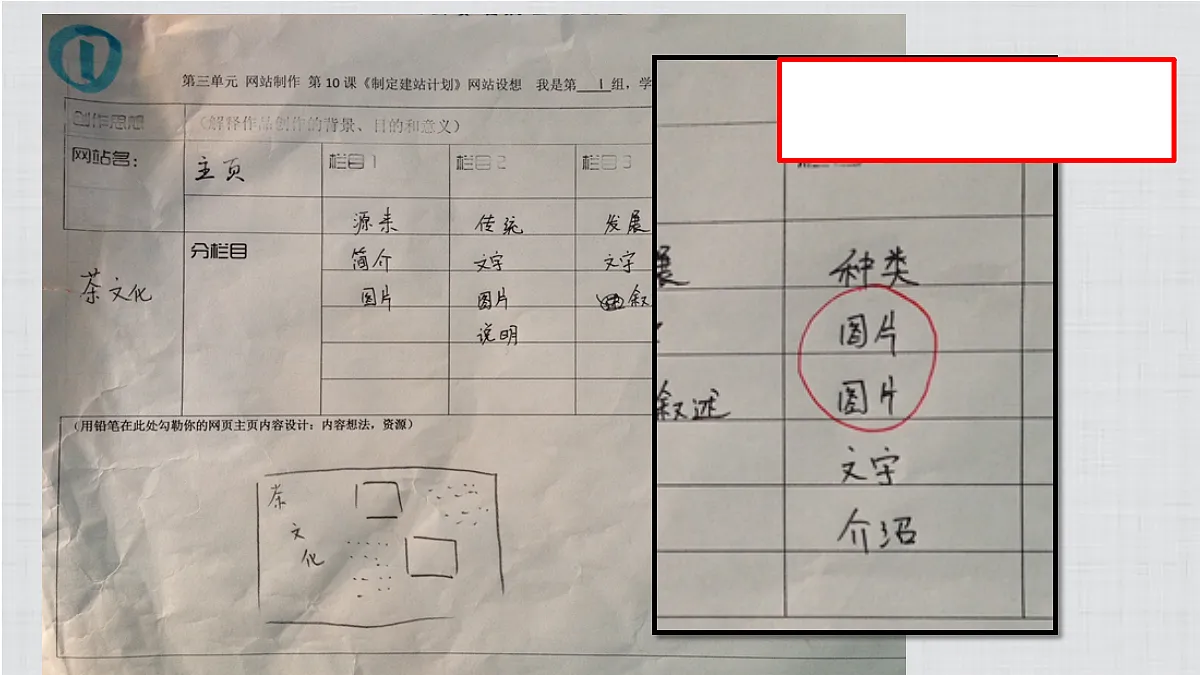 1
第三单元 网站制作 第10课《制定建站计划》网站设想 我是第 1 组，学
创作思想 （解释作品创作的背景、目的和意义）
网站名： 主页 栏目1 栏目2 栏目3
源来 传统 发展
分栏目 简介 文字 文字
茶文化 图片 图片 叙
说明
（用铅笔在此处勾勒你的网页主页内容设计：内容想法，资源）
茶
文
化
展 种类
图片
叙述 图片
文字
介绍